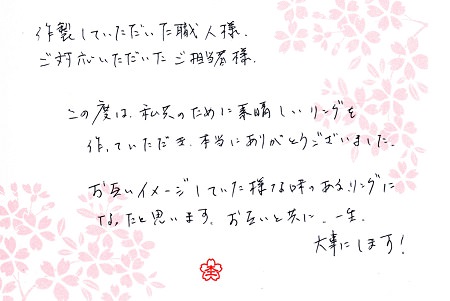 作製していただいた職人様、
ご対応いただいたご担当者様、
この度は、私共のために素晴しいリングを
作っていただき、本当にありがとうございました。
お互いイメージしていた様な味のあるリングに
なったと思います。お互いと共に、一生、
大事にします！